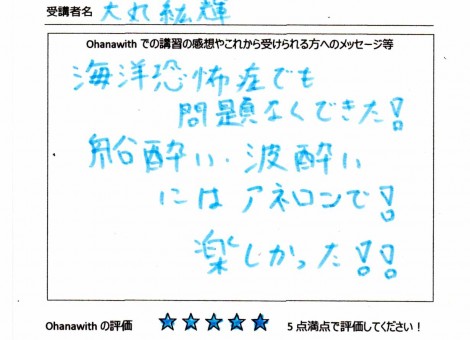 受講者名 大丸紘輝
Ohanawith での講習の感想やこれから受けられる方へのメッセージ等
海洋恐怖症でも
問題なくできた!
船酔い・波酔い
にはアネロンで!
楽しかった!!
Ohanawith の評価 ★★★★★ 5 点満点で評価してください!